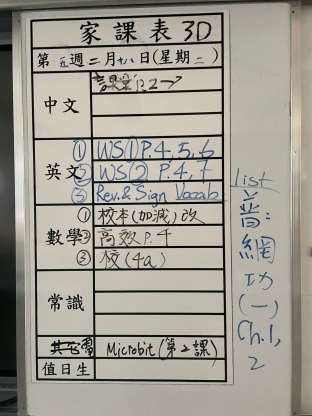 家課表 3D
第五週二月十八日(星期二)
中文
課業 P.2→
英文
① WS① P.4, 5, 6
② WS② P.4, 7
③ Rev. & Sign Vocab
list
數學
① 校本(加減)改
② 高效 P.4
③ 校(4a)
常識
其它
Microbit(第2課)
值日生
普:
網
功
(一)
Ch.1,
2